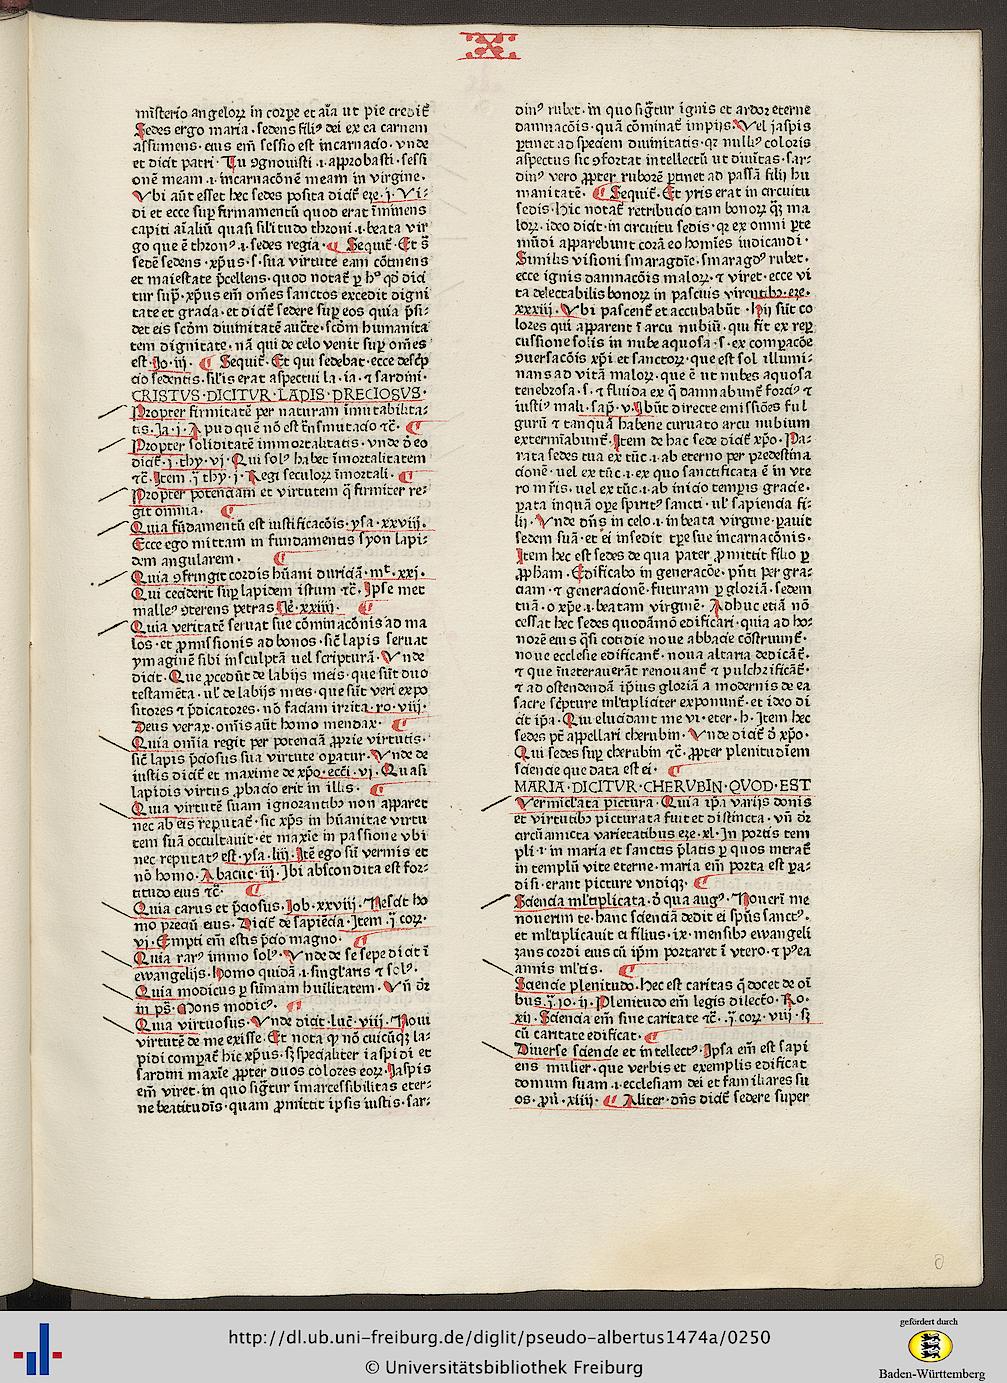 X
misterio angeloꝝ in corꝑe et aīa ut pie credit᷑
Sedes ergo maria· sedens filiꝰ dei ex ea carnem
assumens· eius em̄ sessio est incarnacio· vnde
et dicit patri· Tu ꝯgnouisti ·i· approbasti· sessi
onē meam ·i· incarnacōnē meam in virgine·
Vbi aūt esset hec sedes posita dicit᷑ eze· j· Vi⸗
di et ecce sup̄ firmamentū quod erat īminens
capiti aīaliū quasi sil̄itudo throni ·i· beata vir
go que ē thronꝰ ·i· sedes regia· ¶ Sequit᷑· Et s̄
sedē sedens· xp̄us· s· sua virtute eam cōtinens
et maiestate p̄cellens· quod notat᷑ ꝑ hᵒ qd̄ dici
tur sup̄· xp̄us em̄ om̄es sanctos excedit digni
tate et gracia· et dicit᷑ sedere sup̄ eos quia p̄si⸗
det eis scd̄m diuinitatē auc̄te· scd̄m humanita
tem dignitate· nā qui de celo venit sup̄ om̄es
est· Jo· iij· ¶ Sequit᷑· Et qui sedebat· ecce desc̄p
cio sedentis· sil̄is erat aspectui la· ia· ⁊ sardini·
CRISTVS·DICITVR·LAPIS·PRECIOSVS·
Propter firmitatē per naturam īmutabilita⸗
tis· Ja· j· Apud quē nō est trāsmutacio ⁊c̄· ¶
Propter soliditatē immortalitatis· vnde ō eo
dicit᷑· j· thy· vj· Qui solꝰ habet īmortalitatem
⁊c̄· Item· j᷑ thy· j· Regi seculoꝝ īmortali· ¶
Propter potenciam et virtutem q̄ firmiter re⸗
git omnia· ¶
Quia fūdamentū est iustificacōis· ysa· xxviij·
Ecce ego mittam in fundamentis syon lapi⸗
dem angularem· ¶
Quia ꝯfringit cordis hūani duriciā· mt᷑· xxj·
Qui ceciderit sup̄ lapidem istum ⁊c̄· Ipse met
malleꝰ ꝯterens petras Ie᷑· xxiij· ¶
Quia veritatē seruat sue cōminacōnis ad ma
los· et ꝓmissionis ad bonos· sic᷑ lapis seruat
ymaginē sibi insculptā uel scripturā· Vnde
dicit· Que ꝓcedūt de labijs meis· que sūt duo
testamēta· ul̄ de labijs meis· que sūt veri expo
sitores ⁊ p̄dicatores· nō faciam irrita· ro· viij·
Deus verax· om̄is aūt homo mendax· ¶
Quia om̄ia regit per potenciā ꝓprie virtutis·
sic᷑ lapis p̄ciosus sua virtute oꝑatur· Vnde de
iustis dicit᷑ et maxime de xp̄o· ecc̄i· vj· Quasi
lapidis virtus ꝓbacio erit in illis· ¶
Quia virtutē suam ignorantibꝰ non apparet
nec ab eis reputat᷑· sic xp̄s in hūanitae virtu
tem suā occultauit· et maxīe in passione vbi
nec reputatꝰ est· ysa· liij· Itē ego sū vermis et
nō homo· Abacuc· iij· Ibi abscondita est for⸗
titudo eius ⁊c̄· ¶
Quia carus et p̄ciosus· Job· xxviij· Nescit ho
mo preciū eius· Dicit᷑ de sapiēcia· Item· j᷑ corꝝ·
vj· Empti em̄ estis p̄cio magno· ¶
Quia rarꝰ immo solꝰ· Vnde de se sepe dicit ī
ewangelijs· Homo quidā ·i· singl̄aris ⁊ solꝰ·
Quia modicus ꝑ sūmam huilitatem· Vn̄ dr̄
in ps̄· Mons modicꝰ· ¶
Quia virtuosus· Vnde dicit· luc᷑· viij· Noui
virtutē de me exisse· Et nota ꝙ nō cuicūqꝫ la⸗
pidi comꝑat᷑ hic xp̄us· sꝫ specialiter iaspidi et
sardini maxīe ꝓpter duos colores eoꝝ· Jaspis
em̄ viret· in quo sig᷑tur īmarcessibilitas eter⸗
ne beatitudīs· quam ꝓmittit ipsis iustis· sar⸗
dinꝰ rubet· in quo sig᷑tur ignis et ardor eterne
damnacōis· quā cōminat᷑ impijs· Vel jaspis
ꝑtinet ad speciem diuinitatis· qꝛ nulliꝰ coloris
aspectus sic ꝯfortat intellectū ut diuītas· sar⸗
dinꝰ vero ꝓpter ruborē ꝑtinet ad passā filij hu
manitatē· ¶ Sequit᷑· Et yris erat in circuitu
sedis· Hic notat᷑ retribucio tam bonoꝝ qꝫ ma
loꝝ· ideo dicit· in circuitu sedis· qꝛ ex omni ꝑte
mūdi apparebunt corā eo homīes iudicandi·
Similis visioni smaragdīe· smaragdꝰ rubet·
ecce ignis damnacōis maloꝝ· ⁊ viret· ecce vi
ta delectabilis bonoꝝ in pascuis virentibꝰ· eze·
xxxiij· Vbi pascent᷑ et accubabūt· Hij sūt co
lores qui apparent ī arcu nubiū· qui fit ex reꝑ
cussione solis in nube aquosa· s· ex comꝑacōe
ꝯuersacōis xp̄i et sanctoꝝ· que est sol illumi⸗
nans ad vitā maloꝝ· que ē ut nubes aquosa
tenebrosa· s· ⁊ fluida ex q̄ damnabunt᷑ forciꝰ ⁊
iustiꝰ mali· sap̄· v· Ibūt directe emissiōes ful
gurū ⁊ tanquā habene curuato arcu nubium
exterminabunt᷑· Item de hac sede dicit᷑ xp̄o· Pa⸗
rata sedes tua ex tūc ·i· ab eterno per predestina
cionē· uel ex tūc ·i· ex quo sanctificata ē in vte
ro mr̄is· uel ex tūc ·i· ab inicio temꝑis gracie·
ꝑata inquā oꝑe spiritꝰ sancti· ul̄ sapiencia fi⸗
lij· Vnde dn̄s in celo ·i· in beata virgine· ꝑauit
sedem suā· et ei insedit tꝑe sue incarnacōnis·
Item hec est sedes de qua pater ꝓmittit filio ꝑ
ꝓpham· Edificabo in generacōe· pn̄ti per gra⸗
ciam· ⁊ generacionē· futuram ꝑ gloriā· sedem
tuā· o xp̄e ·i· beatam virginē· Adhuc etiā nō
cessat hec sedes quodāmō edificari· quia ad ho⸗
norē eius q̄si cotidie noue abbacie cōstruunt᷑·
noue ecclesie edificant᷑· noua altaria dedicāt᷑·
⁊ que īueterauerāt renouant᷑ ⁊ pulchrificāt᷑·
⁊ ad ostendendā ip̄ius gloriā a modernis de ea
sacre sc̄pture ml̄tipliciter exponunt᷑· et ideo di
cit ip̄a· Qui elucidant me vi· eter· h· Item hec
sedes pt̄ appellari cherubin· Vnde dicit᷑ ō xp̄o·
Qui sedes sup̄ cherubin ⁊c̄· ꝓpter plenitudīem
sciencie que data est ei· ¶
MARIA·DICITVR·CHERVBIN·QVOD·EST
Vermicl̄ata pictura· Quia ip̄a varijs donis
et virtutibꝰ picturata fuit et distincta· vn̄ dr̄
circūamicta varietatibus eze· xl· In portis tem
pli ·i· in maria et sanctis p̄latis ꝑ quos intrat᷑
in templū vite eterne· maria em̄ porta est ꝑa⸗
disi· erant picture vndiqꝫ· ¶
Sciencia ml̄tiplicata· ō qua augꝰ· Nouerī me
nouerim te· hanc scienciā dedit ei sp̄us sanctꝰ·
et ml̄tiplicauit ei filius· ix· mensibꝰ ewangeli
zans cordi eius cū ip̄m portaret ī vtero· ⁊ pꝰea
annis ml̄tis· ¶
Sciencie plenitudo· Hec est caritas q̄ docet de oī
bus· j᷑· Jo· ij· Plenitudo em̄ legis dilectō· Ro·
xij· Sciencia em̄ sine caritate ⁊c̄· j᷑· corꝝ· viij· sꝫ
cū caritate edificat· ¶
Diuerse sciencie et intellectꝰ· Ipsa em̄ est sapi
ens mulier· que verbis et exemplis edificat
domum suam ·i· ecclesiam dei et familiares su
os· ꝓu᷑· xliij· ¶ Aliter· dn̄s dicit᷑ sedere super
http://dl.ub.uni-freiburg.de/diglit/pseudo-albertus1474a/0250
© Universitätsbibliothek Freiburg
gefördert durch
Baden-Württemberg